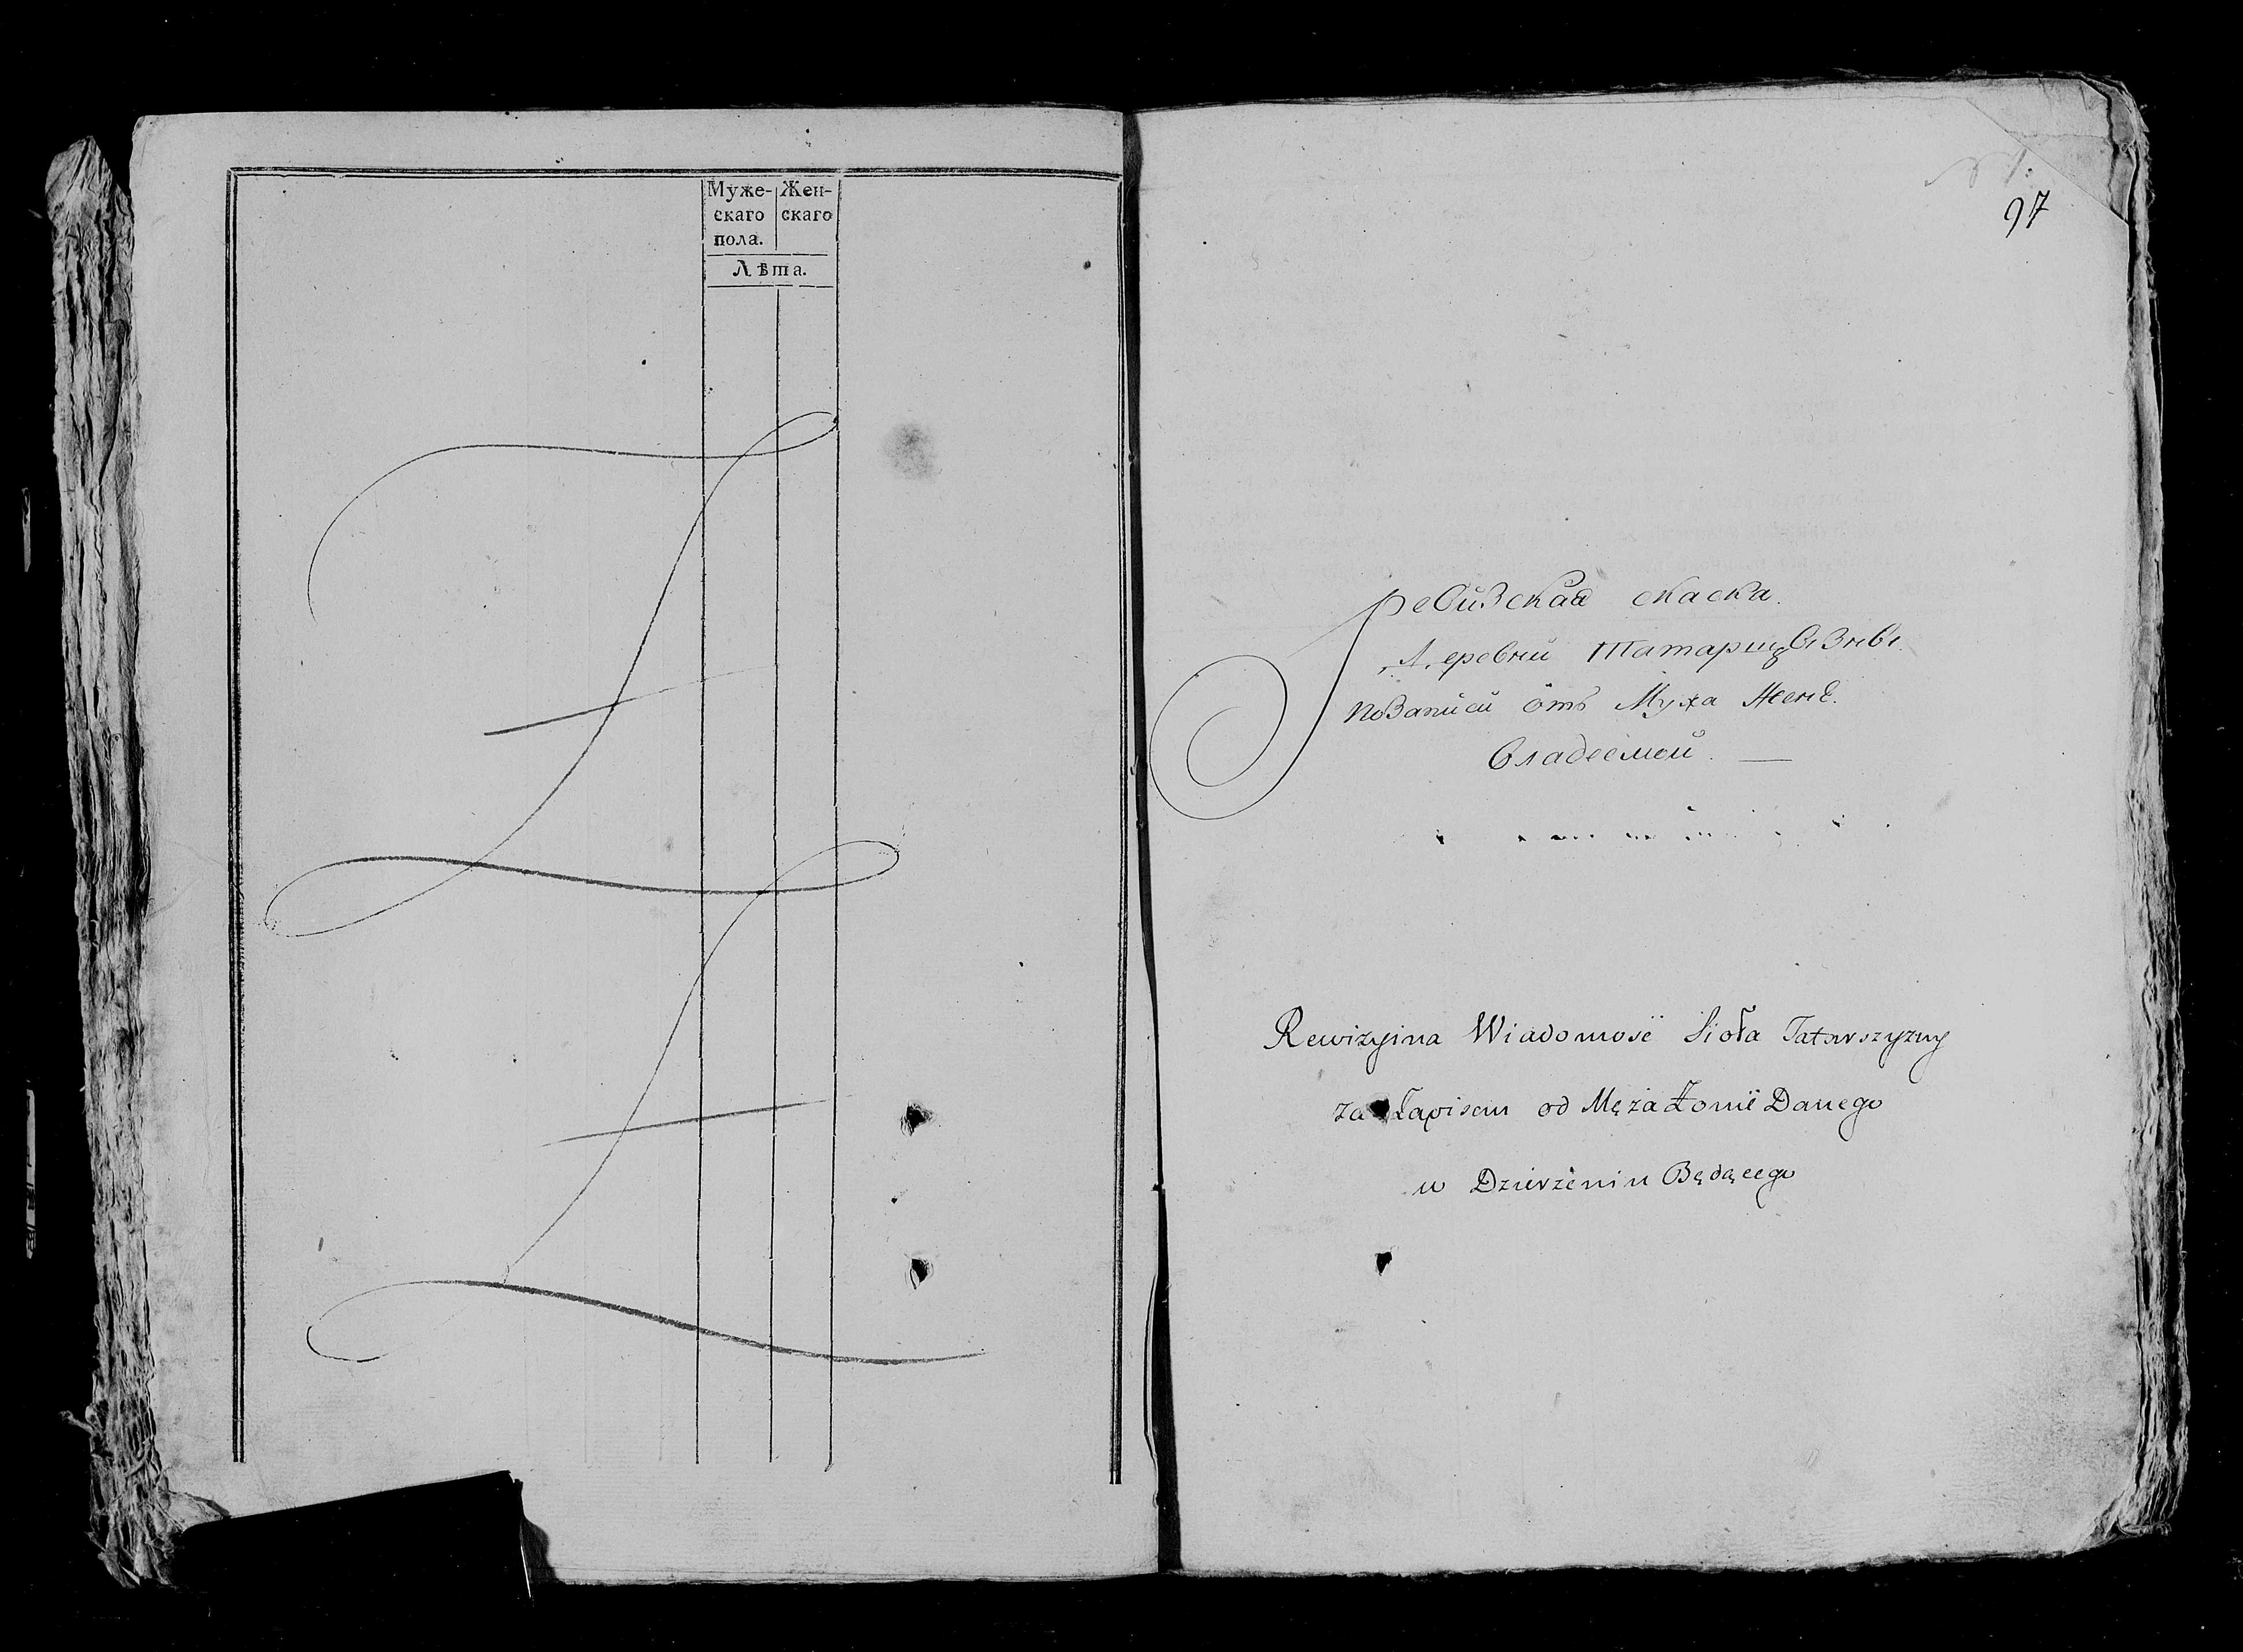 Муже-
скаго
пола.
Жен-
скаго
Лѣта.
97
Ревизская скаска.
Деревни Татарщизны
по записи отъ Мужа Жене.
владеемой. —
Rewizyina Wiadomość Sioła Tatarszyzny
za Zapisem od Męża Żonie Danego
w Dzierżeniu Będącego